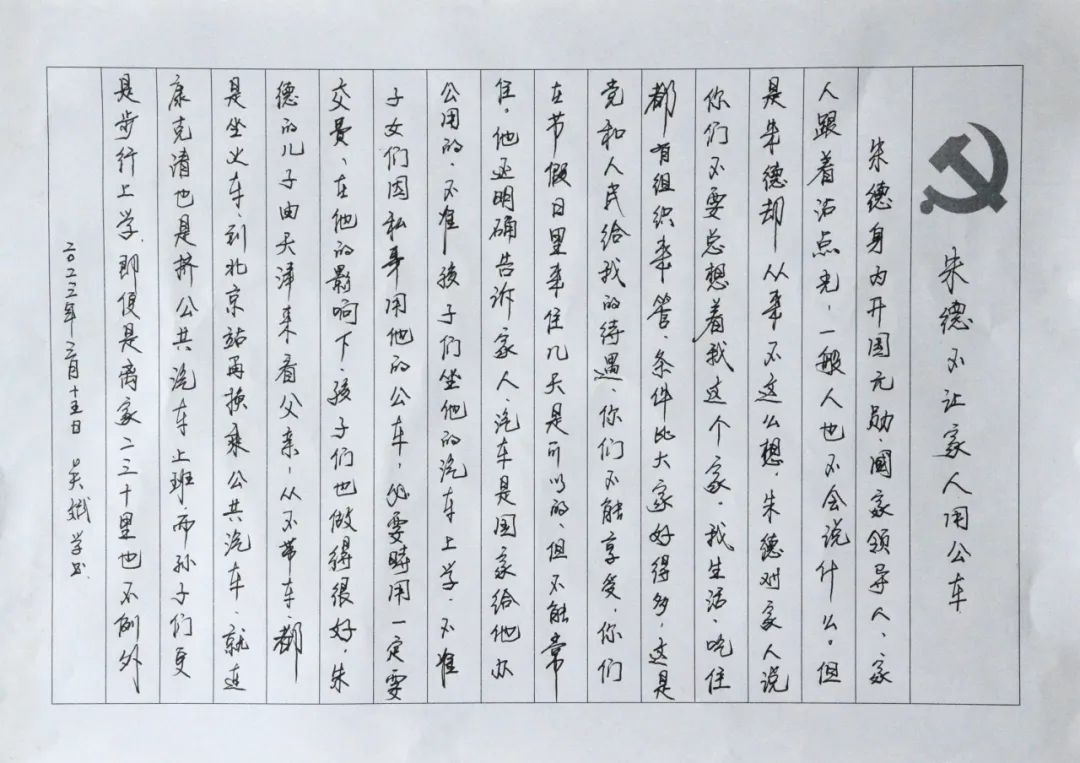 朱德不让家人用公车
朱德身为开国元勋、国家领导人、家
人跟着沾点光，一般人也不会说什么。但
是朱德却从来不这么想，朱德对家人说
你们不要总想着我这个家，我生活、吃住
都有组织来管、条件比大家好得多，这是
党和人民给我的待遇、你们不能享受，你们
在节假日里来住几天是可以的、但不能常
住。他还明确告诉家人、汽车是国家给他办
公用的、不准孩子们坐他的汽车上学、不准
子女们因私事用他的公车，必要時用一定要
交费、在他的影响下、孩子们也做得很好，朱
德的儿子由天津来看父亲，从不带车、都
是坐火车、到北京站再换乘公共汽车、就连
康克清也是挤公共汽车上班、而孙子们更
是步行上学、即便是离家二三十里也不例外
二〇二三年二月十五日 吴娥学书